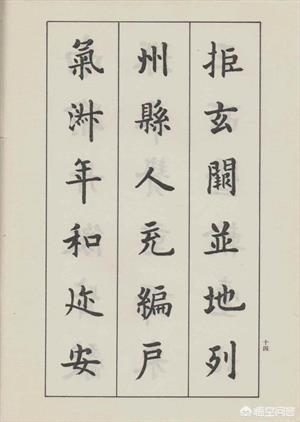 拒玄闕並地列
州縣人充編戶
氣淑年和迩安
十四
悟空问答